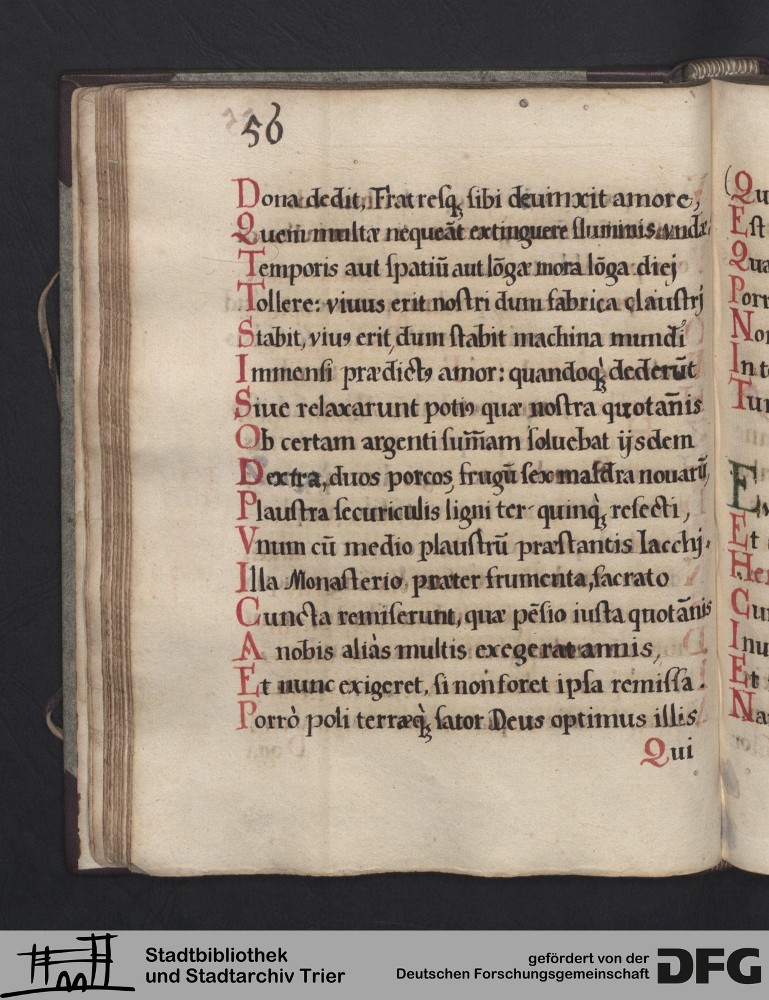 56
Dona dedit, Fratresq; sibi deuinxit amore,
Quem multæ nequeãt extinguere fluminis undæ.
Temporis aut spatiũ aut lõgæ mora lõga diej
Tollere: viuus erit nostri dum fabrica claustrj
Stabit, viuꝰ erit, dum stabit machina mundi
Immensi prædictꝰ amor: quandoq; dederũt
Siue relaxarunt potiꝰ quæ nostra quotañis
Ob certam argenti sum̃am soluebat ijsdem
Dextra, duos porcos, frugũ sex maldra nouarũ,
Plaustra securiculis ligni ter quinq; resecti,
Vnum cũ medio plaustrũ præstantis Iacchj.
Illa Monasterio, præter frumenta, sacrato
Cuncta remiserunt, quæ pẽsio iusta quotañis
A nobis aliàs multis exegerat annis,
Et nunc exigeret, si non foret ipsa remissa.
Porrò poli terræq; sator Deus optimus illis
Qui
(Qu
Est
Qua
Porr
Non
In te
Tun
Et
Her
Cun
Inu
Et
Na
Stadtbibliothek
und Stadtarchiv Trier
gefördert von der
Deutschen Forschungsgemeinschaft
DFG